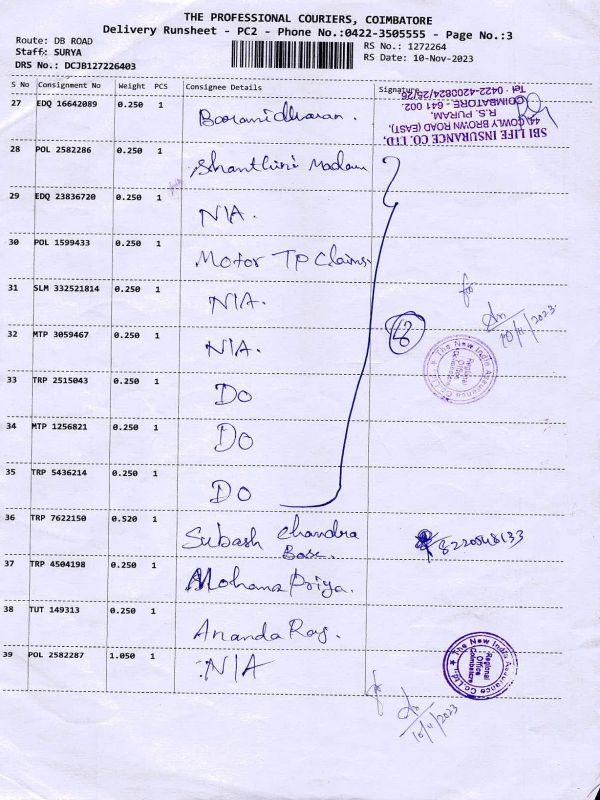 THE PROFESSIONAL COURIERS, COIMBATORE
Delivery Runsheet - PC2 - Phone No.:0422-3505555 - Page No.:3
Route: DB ROAD
RS No.: 1272264
Staff: SURYA
RS Date: 10-Nov-2023
DRS No.: DCJB127226403
S No Consignment No Weight PCS Consignee Details Signature
SBI LIFE INSURANCE CO LTD,
44, COWLY BROWN ROAD (EAST),
R.S. PURAM,
COIMBATORE - 641 002.
0422-4200824/25/26
27 EDQ 16642089 0.250 1 Booranidharan.
28 POL 2582286 0.250 1 Shanthini Madam
29 EDQ 23836720 0.250 1 NIA.
30 POL 1599433 0.250 1 Motor TP Claims
31 SLM 332521814 0.250 1 NIA.
32 MTP 3059467 0.250 1 NIA.
10/11/2023
8
The New India Assurance Co. Ltd.
Regional
Office
Coimbatore
33 TRP 2515043 0.250 1 DO
34 MTP 1256821 0.250 1 DO
35 TRP 5436214 0.250 1 DO
36 TRP 7622150 0.520 1 Subash Chandra
Bose.
37 TRP 4504198 0.250 1 Mohana Priya.
38 TUT 149313 0.250 1 Ananda Raj.
39 POL 2582287 1.050 1 NIA
The New India Assurance Co. Ltd.
Regional
Office
Coimbatore
10/11/2023